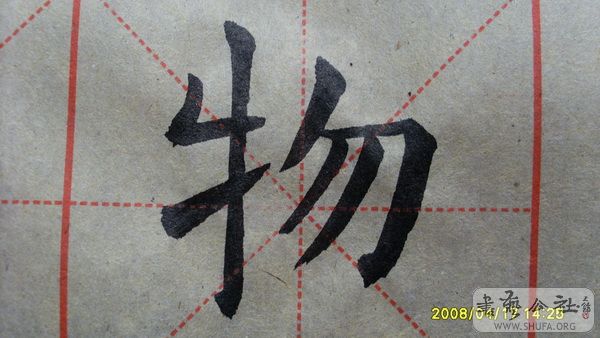 物
2008/04/19 14:25
書藝公社
WWW.SHUFA.ORG